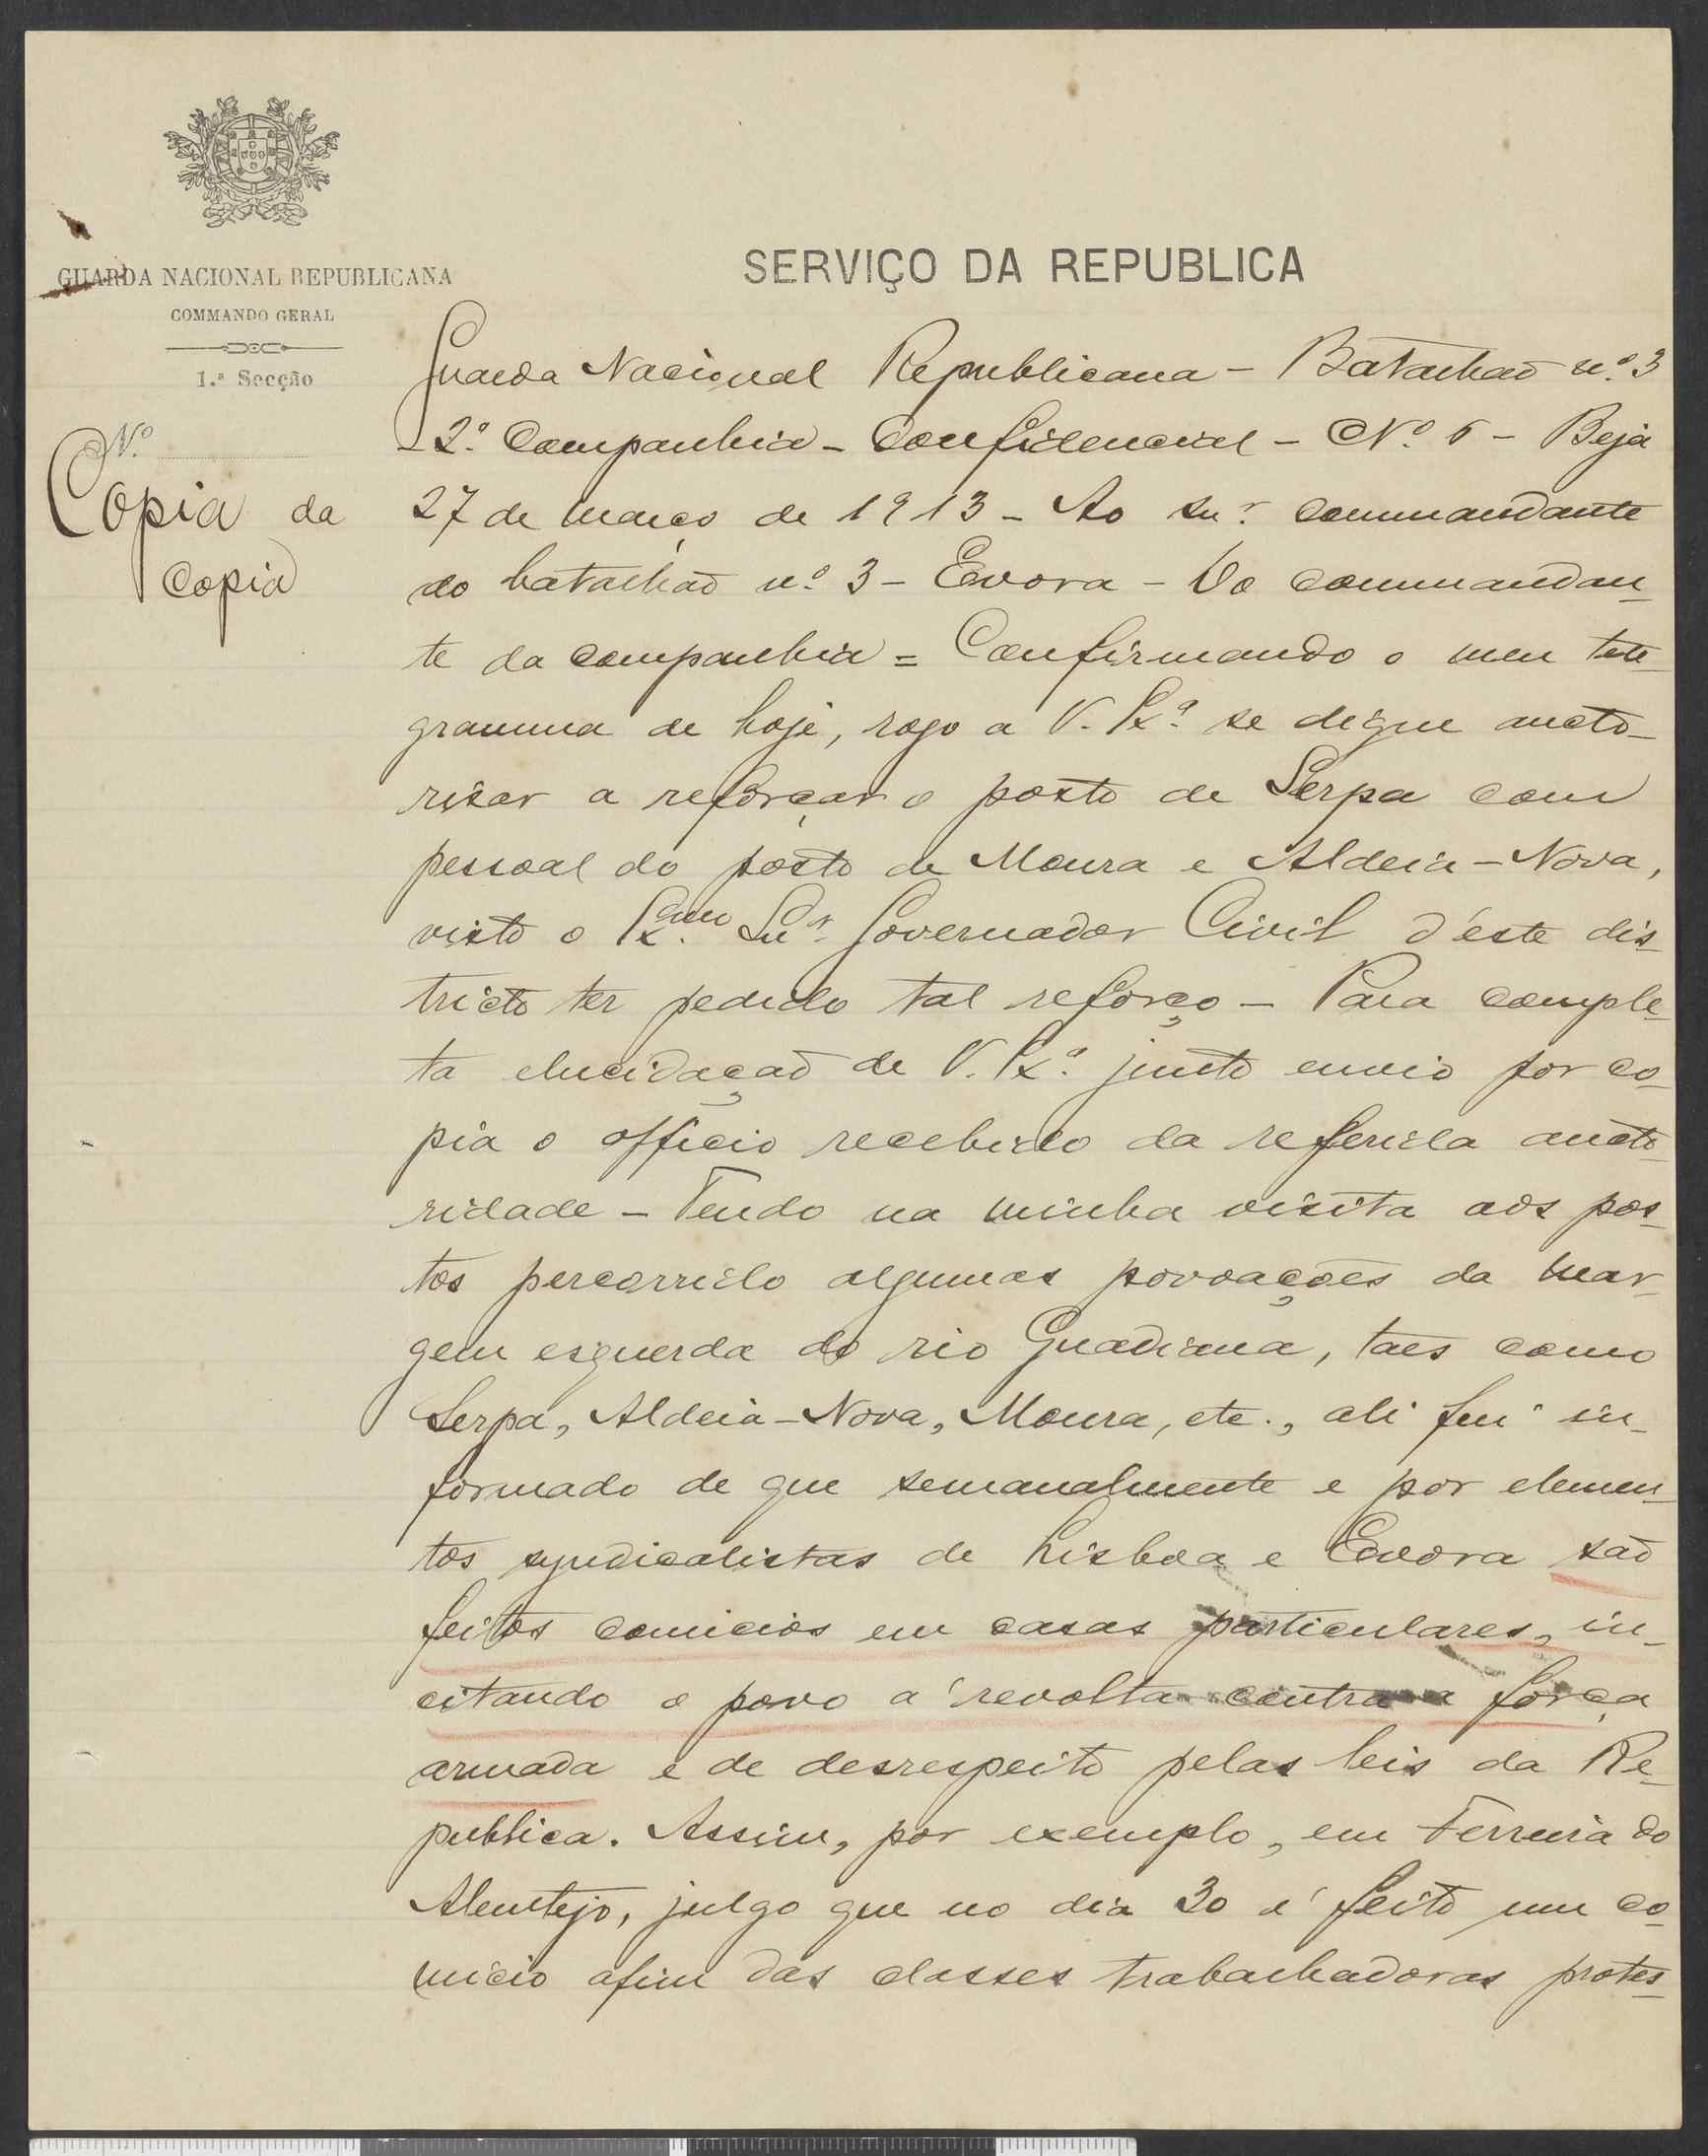 GUARDA NACIONAL REPUBLICANA
COMMANDO GERAL
1.ª Secção
N.º
Copia da
copia
SERVIÇO DA REPUBLICA
Guarda Nacional Republicana - Batalhão n.º 3
- 2.ª Companhia - Confidencial - N.º 6 - Beja
27 de março de 1913 - Ao Snr. commandante
do batalhão n.º 3 - Evora - Do commandan-
te da companhia = Confirmando o meu tele-
gramma de hoje, rogo a V. Ex.ª se digne aucto-
risar a reforçar o posto de Serpa com
pessoal do posto de Moura e Aldeia-Nova,
visto o Ex.mo Snr. Governador Civil d'éste dis-
tricto ter pedido tal reforço - Para comple-
ta elucidação de V. Ex.ª junto envio por co-
pia o officio recebido da referida aucto-
ridade - Tendo na minha visita aos pos-
tos percorrido algumas povoações da mar-
gem esquerda do rio Guadiana, taes como
Serpa, Aldeia-Nova, Moura, etc., ali fui in-
formado de que semanalmente e por elemen-
tos syndicalistas de Lisboa e Evora são
feitos comicios em casas particulares, in-
citando o povo á revolta contra a força
armada e de desrespeito pelas leis da Re-
publica. Assim, por exemplo, em Ferreira do
Alemtejo, julgo que no dia 30 é feito um co-
micio afim das classes trabalhadoras protes-